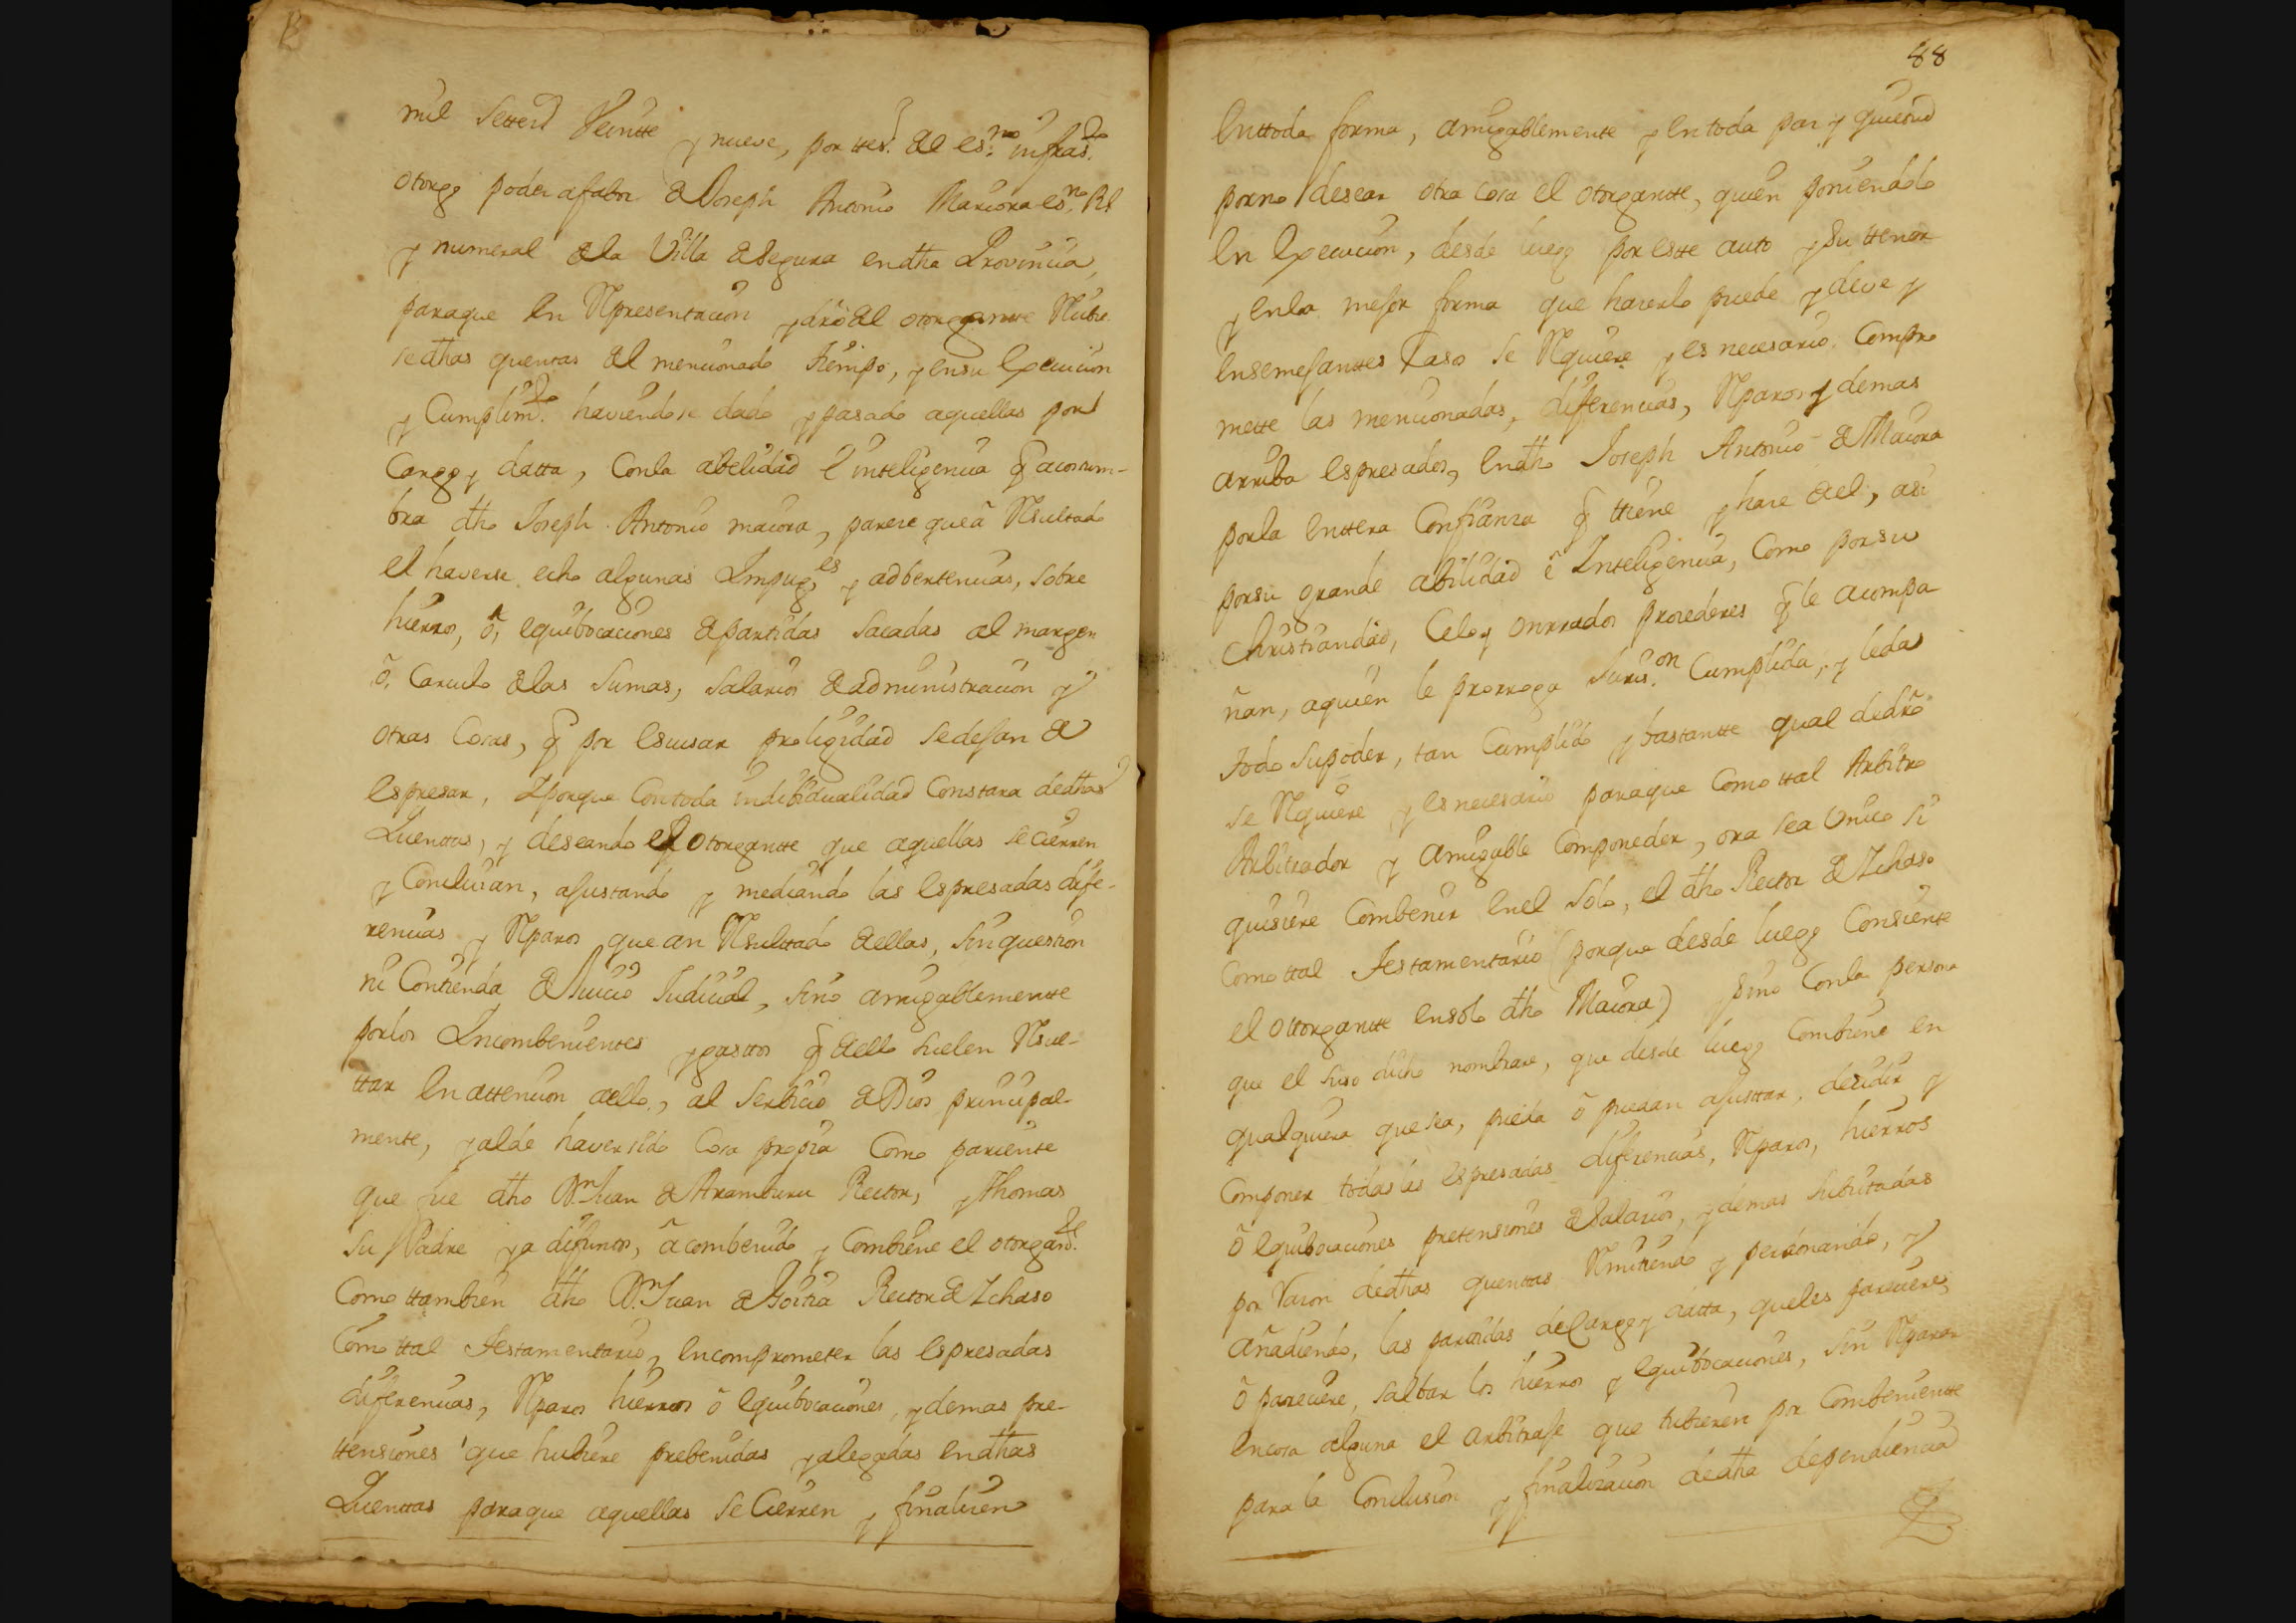 mil Settes.d Veintte y nueve, por ttes.o de es.no infras.do
otorgo poder afabor de Joseph Antonio Maiora es.no Rl
y numeral dela Villa de Segura endha Provincia,
paraque en Representacion y dro del otorgantte Recibie
se dhas quentas del mencionado tiempo, y ensu execucion
y Cumplim.to haviendose dado y pasado aquellas por
Cargo y datta, Conla abelidad é inteligencia q acostum-
bra dho Joseph Antonio maiora, parece queã Resultado
el haverse echo algunas Impug.es y adbertencias, sobre
hierros, õ, equibocaciones de partidas sacadas al margen
õ, Carculo de las sumas, salarios de administracion y
otras Cosas, q por escusar proligidad se dejan de
espresar, Yporque Contoda indibidualidad Constara dedhas
Quenttas, y deseando el otorgantte que aquellas se cierren
y Concluian, ajustando y mediando las espresadas dife-
rencias y Reparos que an Resulttado dellas, sin question
ni Contienda de Juicio Judicial, sino amigablementte
porlos Incombenientes y gasttos q dello suelen Resul-
ttar en attencion aello, al serbicio de Dios principal-
mente, y alde haver sido Cosa propia Como pariente
que fue dho Dn. Juan de Aramburu Rector, y Thomas
su Padre ya difuntos, ã combenido y Combiene el otorgan.te
Como ttambien dho Dn. Juan de Goitia Rector de Ichaso
Como ttal Testamentario, en comprometer las espresadas
diferencias, Reparos hierros õ equibocaciones, y demas pre-
ttensiones que hubiere prebenidas y alegadas en dhas
Quenttas paraque aquellas se Cierren y finalicen
88
Enttoda forma, amigablemente y en toda paz y quietud
porno desear otra cosa el otorgantte, quien poniendolo
En Execucion, desde luego por estte auto y su ttenor
y enla mejor forma que hacerlo puede y deve y
Ensemejanttes Caso se Requiere y es necesario. Compro
mette las mencionadas, diferencias, Reparos y demas
arriba espresados, En dho Joseph Antonio de Maiora
porla Enttera Confianza q ttiene y hace del, asi
porsu grande abilidad ẽ Inteligencia, Como porsu
Christiandad, Celo y onrrados procederes q le acompa
ñan, aquien le prorroga Juris.on Cumplida, y leda
todo supoder, tan Cumplido y bastantte qual dedrõ
se Requiere y es necesario paraque Como ttal Arbitro
Arbitrador y amigable Componedor, ora sea Unico si
quisiere Combenir Enel solo, el dho Rector de Ichaso
Como ttal Testamentario (porque desde luego Consiente
el ottorgantte ensolo dho Maiora) y sino Conla persona
que el suso dicho nombrare, que desde luego Combiene en
qualquiera que sea, pueda õ puedan ajusttar, decidir y
Componer todas las espresadas diferencias, Reparos, hierros
õ equibocaciones pretensiones de salarios, y demas subcitadas
por Razon dedhas quenttas Remitiendo y perdonando, y
añadiendo, las partidas de Cargo y datta, queles pareciere,
õ pareciere, salbar los hierros y equibocaciones, sin Reparar
encosa alguna el arbitraje que tubieren por Combenientte
para la Conclusion y finalizacion dedha dependiencia